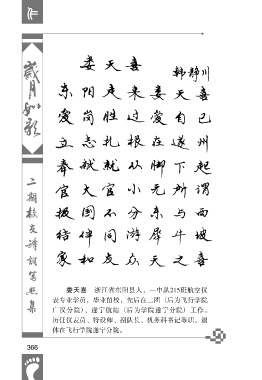 作
岁月如歌
二期校友诗词写照集
娄天喜
韩静川
东阳走来娄天喜
爱岗胜过爱自己
立志扎根在遂州
奉献就从脚下起
官大官小无所谓
报国不分东与西
结伴同游犀牛坡
家和友众天之喜
娄天喜 浙江省东阳县人，一中队215班航空仪
表专业学员。毕业留校，先后在二团（后为飞行学院
广汉分院）、遂宁航站（后为学院遂宁分院）工作。
历任仪表员、特设师、副队长、机务科书记等职。退
休在飞行学院遂宁分院。
366